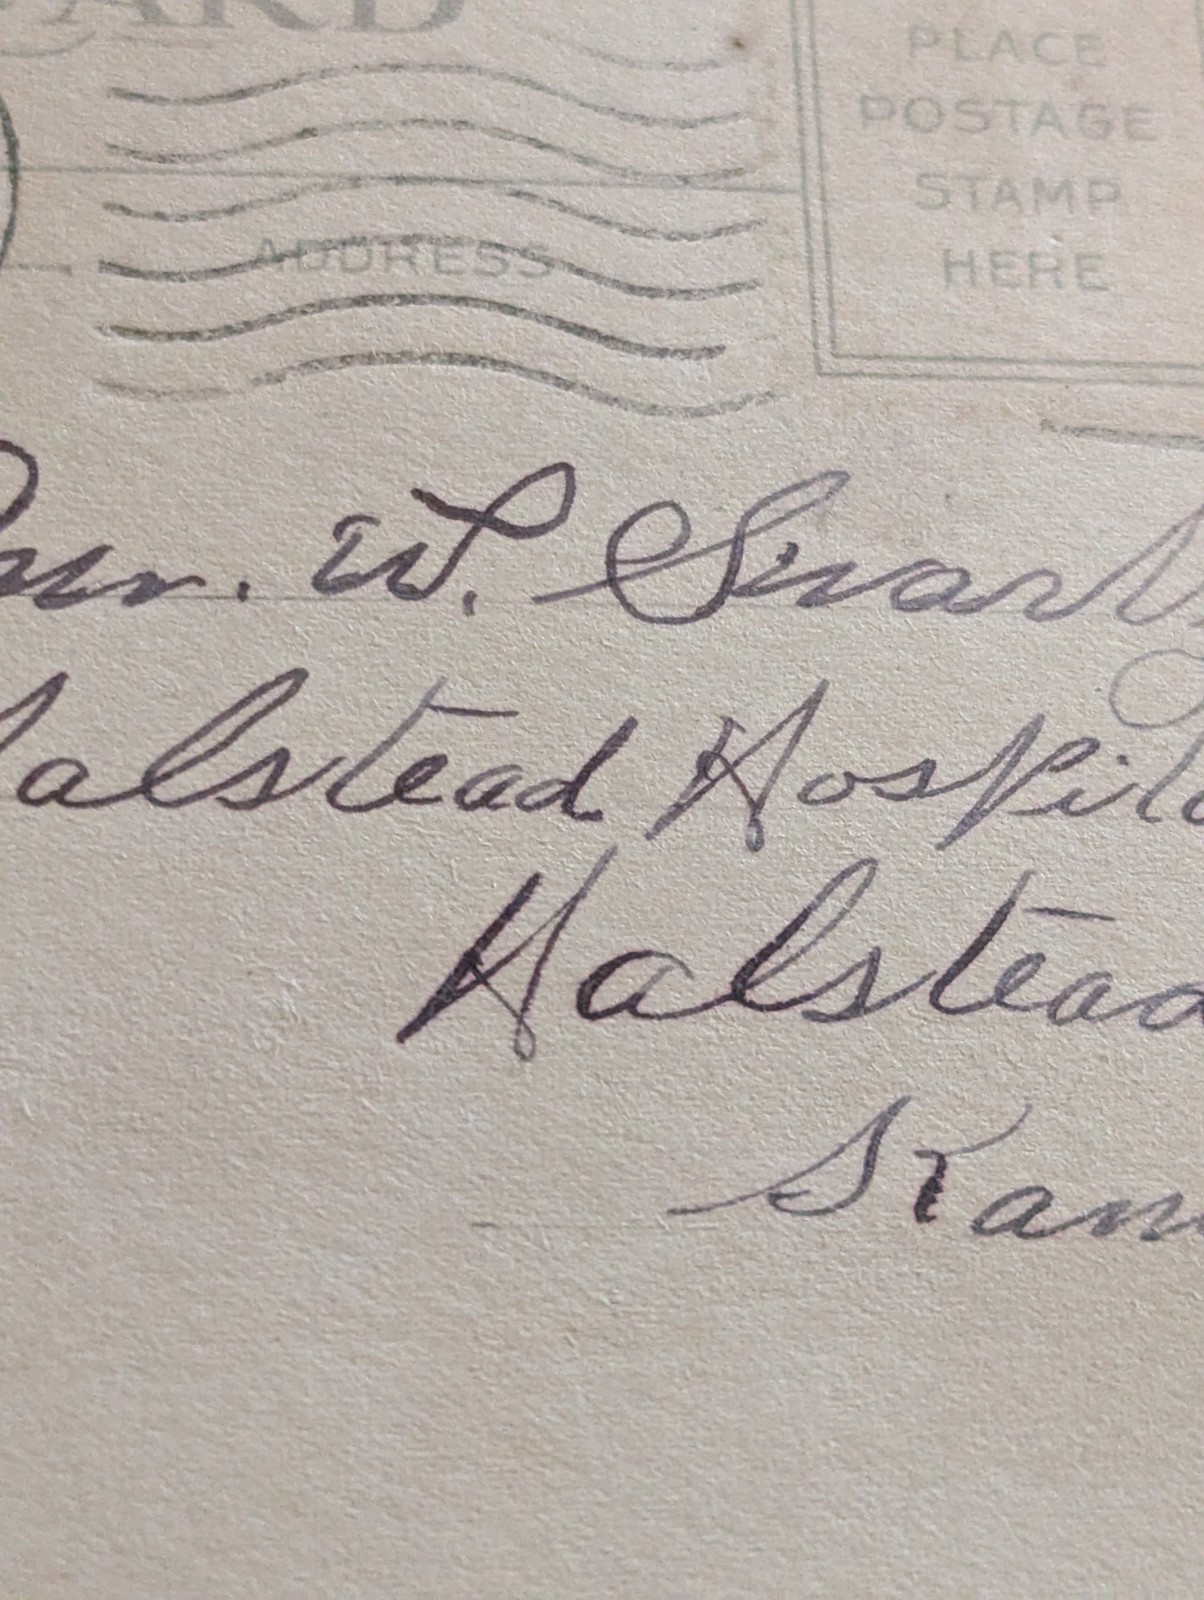 CARD
PLACE
POSTAGE
STAMP
HERE
ADDRESS
Mr. W. Swart
Halstead Hospita
Halstead
Kan